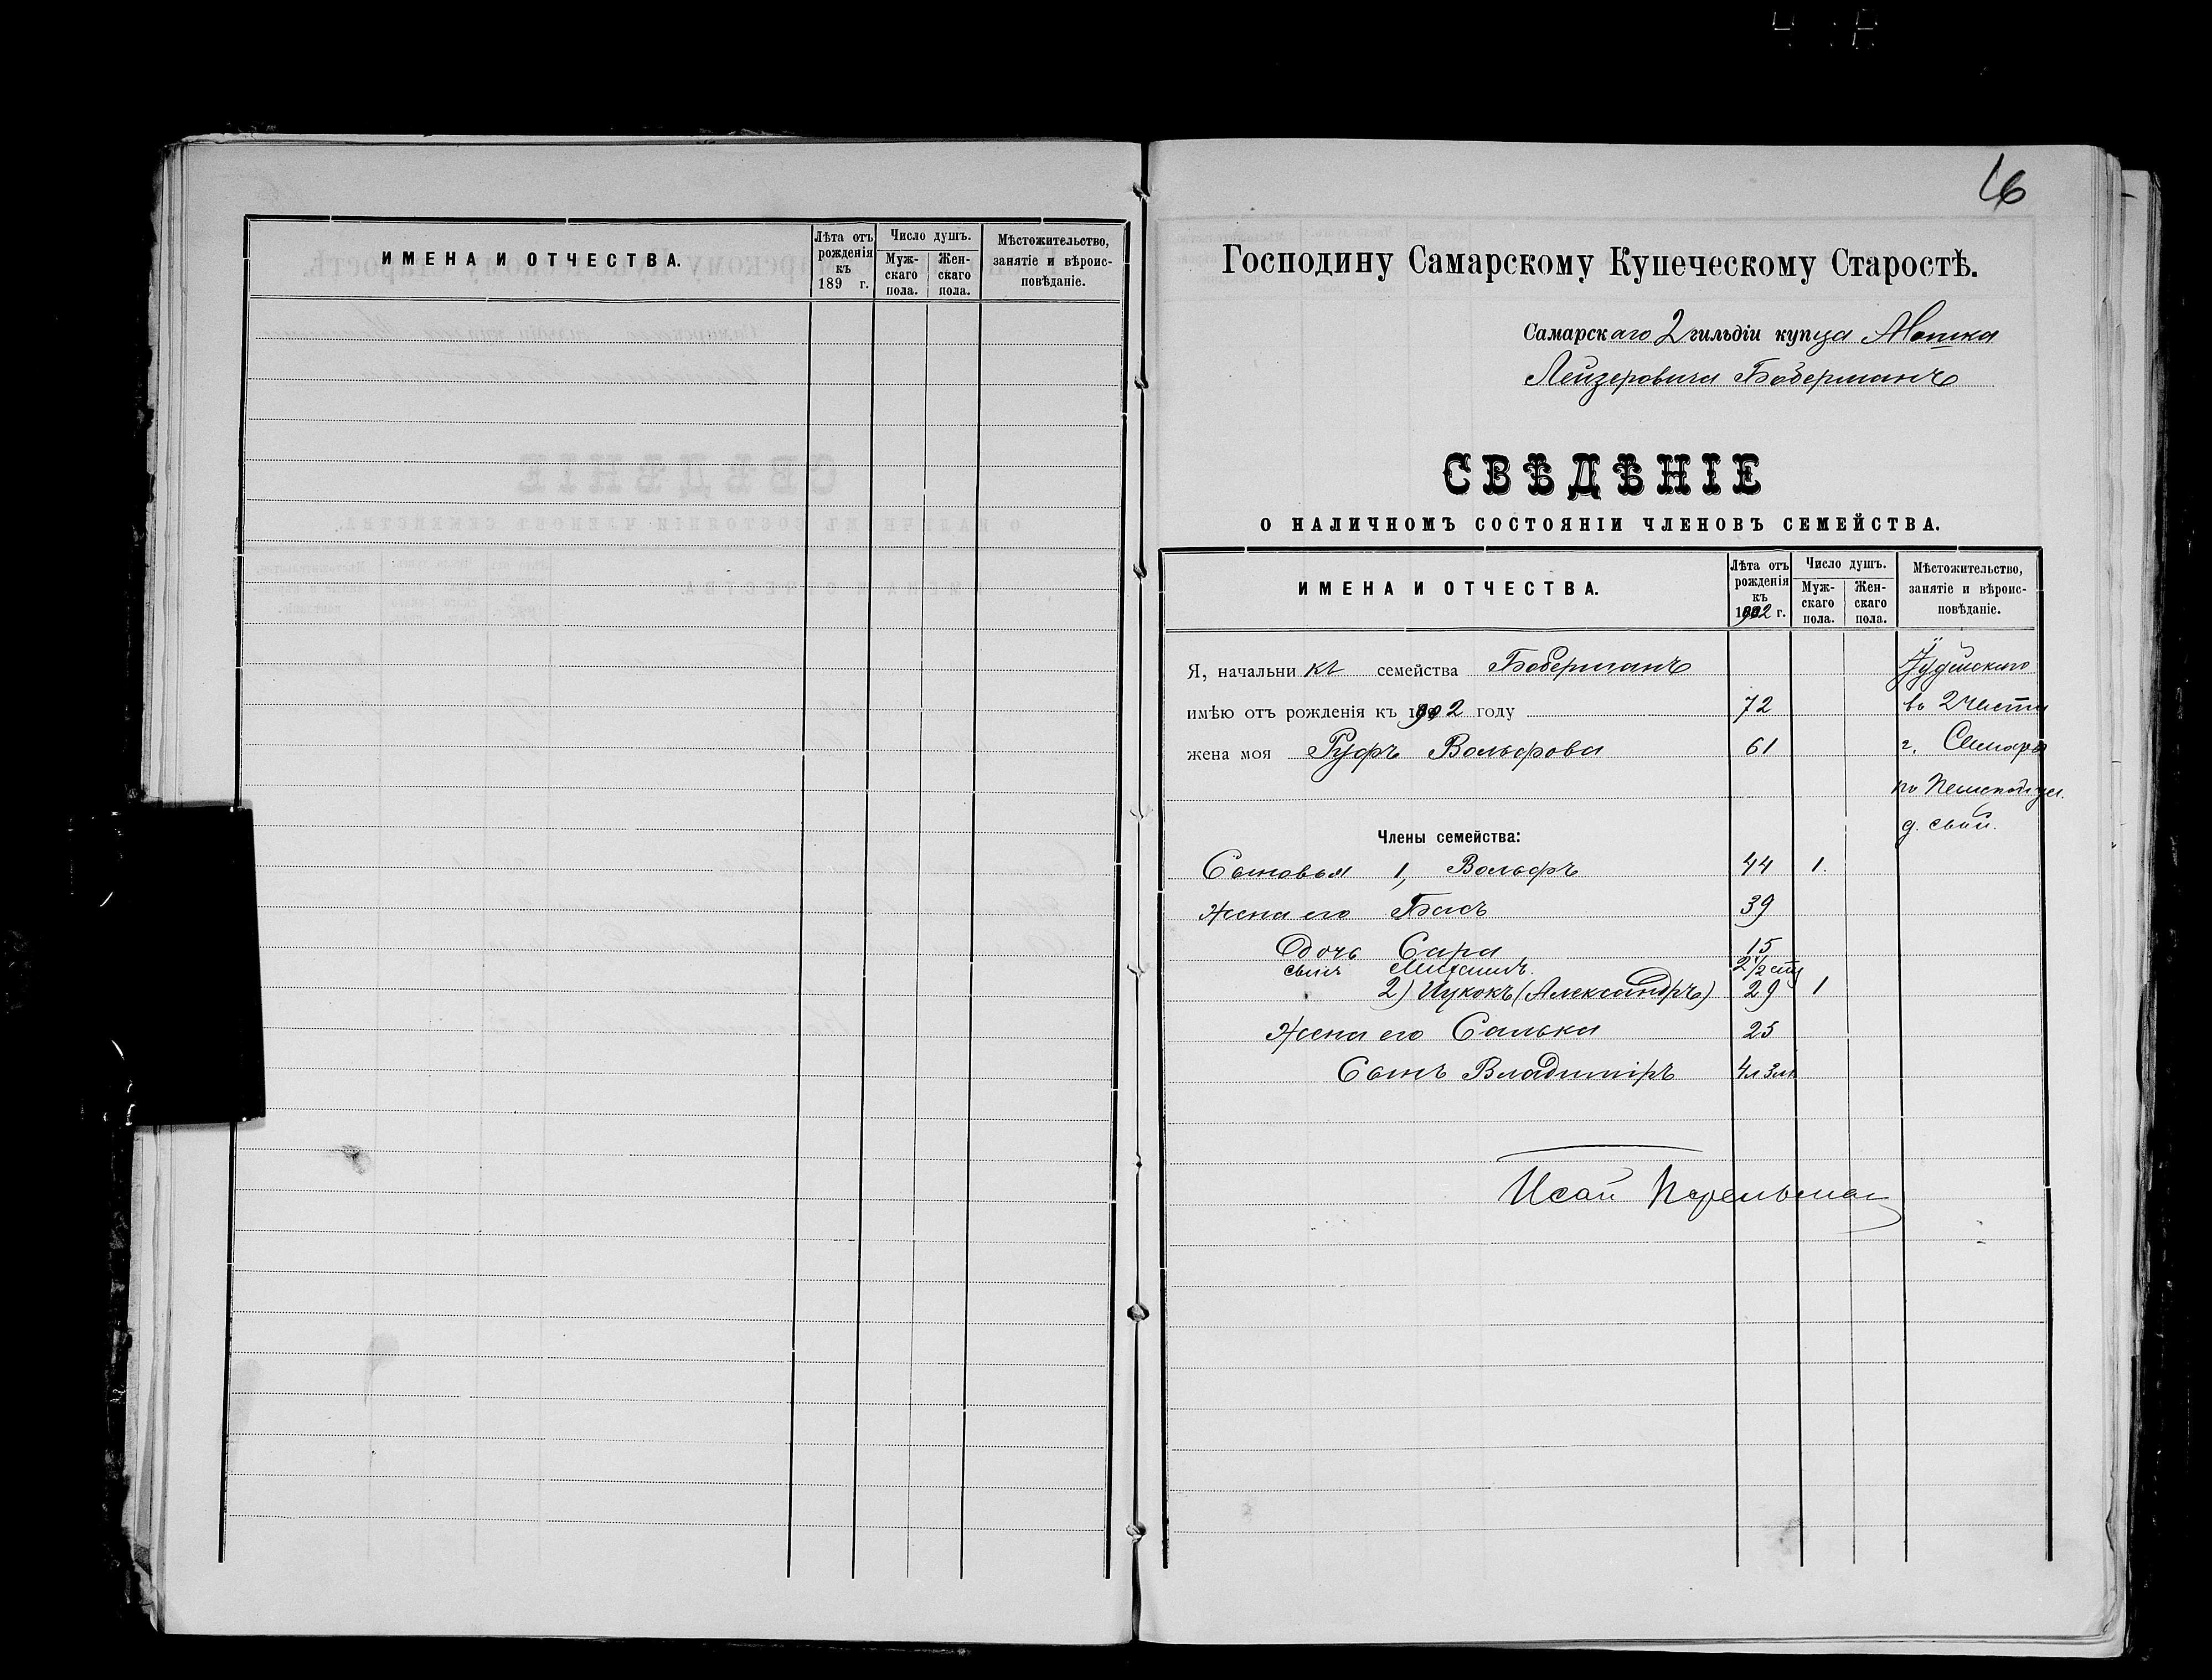 ИМЕНА И ОТЧЕСТВА.
Лѣта отъ рожденія къ 189 г.
Число душъ.
Муж-скаго пола.
Жен-скаго пола.
Мѣстожительство, занятіе и вѣроис-повѣданіе.
16
Господину Самарскому Купеческому Старостѣ.
Самарскаго 2 гильдіи купца Мошка
Лейзеровича Боберманъ
СВѢДѢНІЕ
О НАЛИЧНОМЪ СОСТОЯНІИ ЧЛЕНОВЪ СЕМЕЙСТВА.
ИМЕНА И ОТЧЕСТВА.
Лѣта отъ рожденія къ 1902 г.
Число душъ.
Муж-скаго пола.
Жен-скаго пола.
Мѣстожительство, занятіе и вѣроис-повѣданіе.
Я, начальникъ семейства Боберманъ Іудейскаго
имѣю отъ рожденія къ 1902 году 72 во 2 части
жена моя Руфъ Вольфова 61 г. Самары
по ул.
Члены семейства: д. свой.
Сыновья 1, Вольфъ 44 1.
Жена его Бася 39
Дочь Сара 15
сынъ Михаилъ 2 1/2
2) Ицкокъ (Александръ) 29 1
Жена его Салька 25
Сынъ Владиміръ 4 л 3 м
Исай